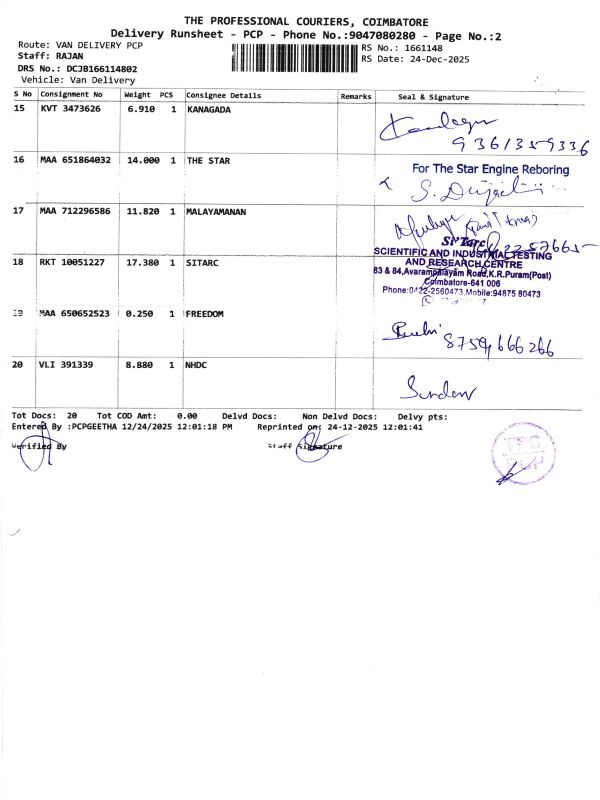 THE PROFESSIONAL COURIERS, COIMBATORE
Delivery Runsheet - PCP - Phone No.:9047080280 - Page No.:2
Route: VAN DELIVERY PCP
RS No.: 1661148
Staff: RAJAN
RS Date: 24-Dec-2025
DRS No.: DCJB166114802
Vehicle: Van Delivery
S No Consignment No Weight PCS Consignee Details Remarks Seal & Signature
15 KVT 3473626 6.910 1 KANAGADA
9361359336
16 MAA 651864032 14.000 1 THE STAR
For The Star Engine Reboring
17 MAA 712296586 11.820 1 MALAYAMANAN
SCIENTIFIC AND INDUSTRIAL TESTING
AND RESEARCH CENTRE
18 RKT 10051227 17.380 1 SITARC
83 & 84, Avarampalayam Road, K.R.Puram(Post)
Coimbatore-641 006
Phone:0422-2560473, Mobile:94875 80473
19 MAA 650652523 0.250 1 FREEDOM
8759 666 266
20 VLI 391339 8.880 1 NHDC
Tot Docs: 20 Tot COD Amt: 0.00 Delvd Docs: Non Delvd Docs: Delvy pts:
Entered By :PCPGEETHA 12/24/2025 12:01:18 PM Reprinted on: 24-12-2025 12:01:41
Verified By Staff Signature